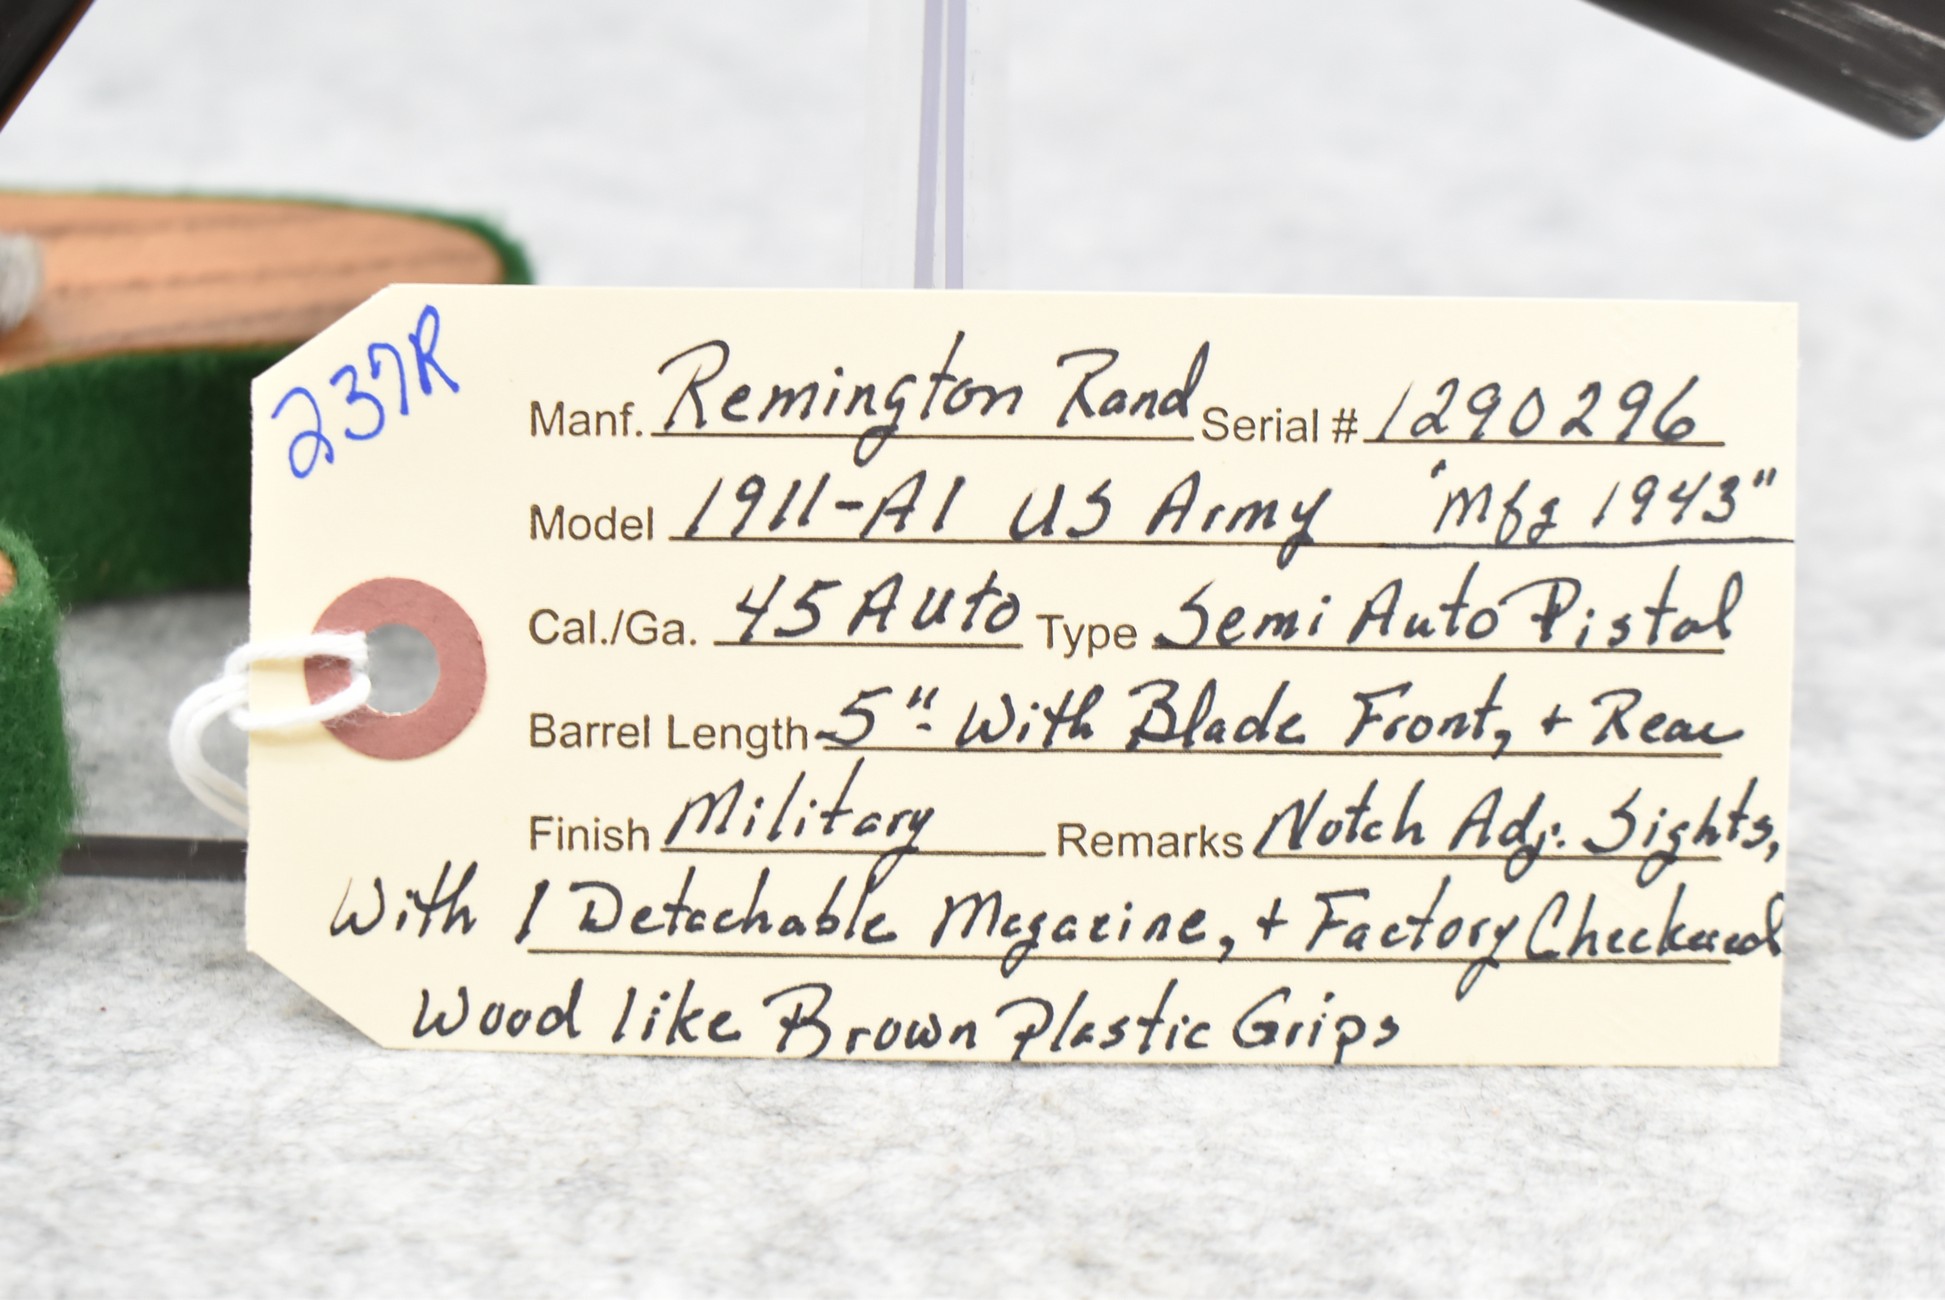 237R
Manf. Remington Rand Serial # 1290296
Model 1911-A1 US Army "Mfg 1943"
Cal./Ga. 45 Auto Type Semi Auto Pistol
Barrel Length 5" With Blade Front, + Rear
Finish Military Remarks Notch Adj. Sights,
With 1 Detachable Magazine, + Factory Checkered
Wood like Brown Plastic Grips